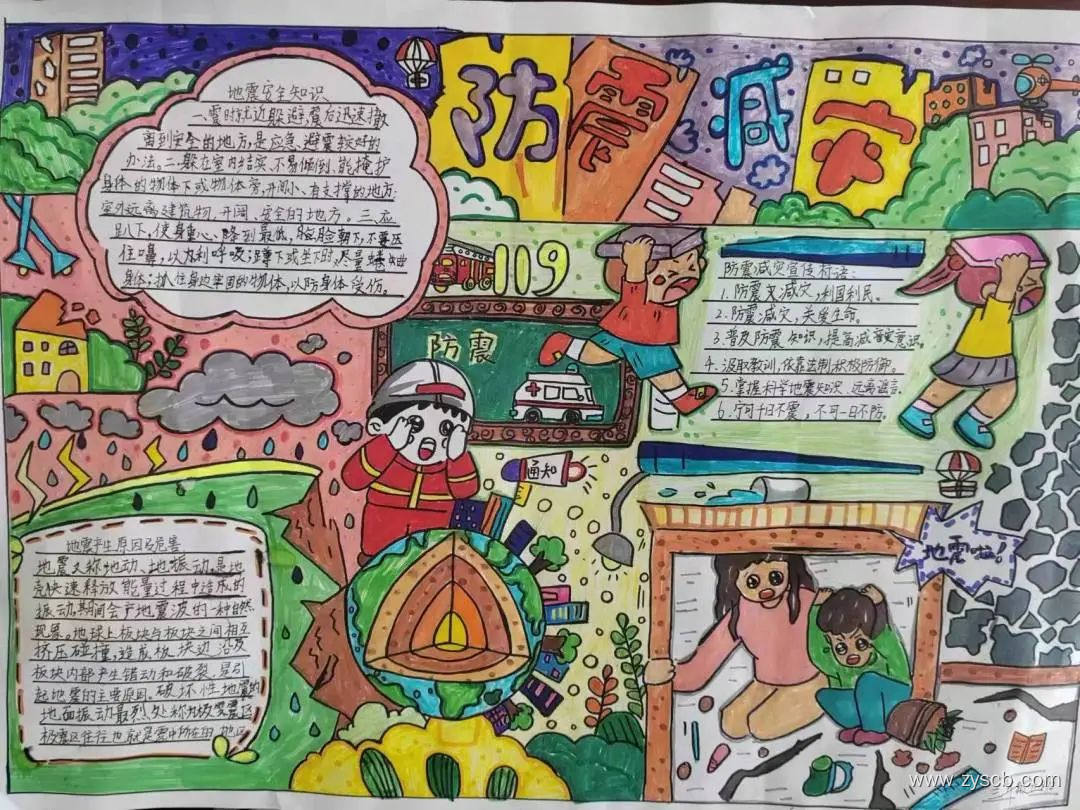 防震减灾
地震安全知识
一、震时就近躲避,震后迅速撤
离到安全的地方,是应急避震较好的
办法。二、躲在室内结实、不易倾倒、能掩护
身体的物体下或物体旁,开间小、有支撑的地方;
室外远离建筑物,开阔、安全的地方。三、应
趴下,使身重心降到最低,脸朝下,不要压
住口鼻,以利呼吸;蹲下或坐下时,尽量蜷曲
身体;抓住身边牢固的物体,以防身体受伤。
119
防震
防震减灾宣传标语:
1.防震来减灾,利国利民。
2.防震减灾、关爱生命。
3.普及防震知识,提高减灾意识。
4.汲取教训,依靠法制积极防御。
5.掌握科学地震知识 远离谣言。
6.宁可千日不震,不可一日不防。
通知
地震啦!
地震产生原因及危害
地震又称地动、地振动,是地
壳快速释放能量过程中造成的
振动,期间会产地震波的一种自然
现象。地球上板块与板块之间相互
挤压碰撞,造成板块边沿及
板块内部产生错动和破裂,是引
起地震的主要原因。破坏性地震的
地面振动最烈处称为极震区
极震区往往也就是震中所在的地区
www.zyscb.com